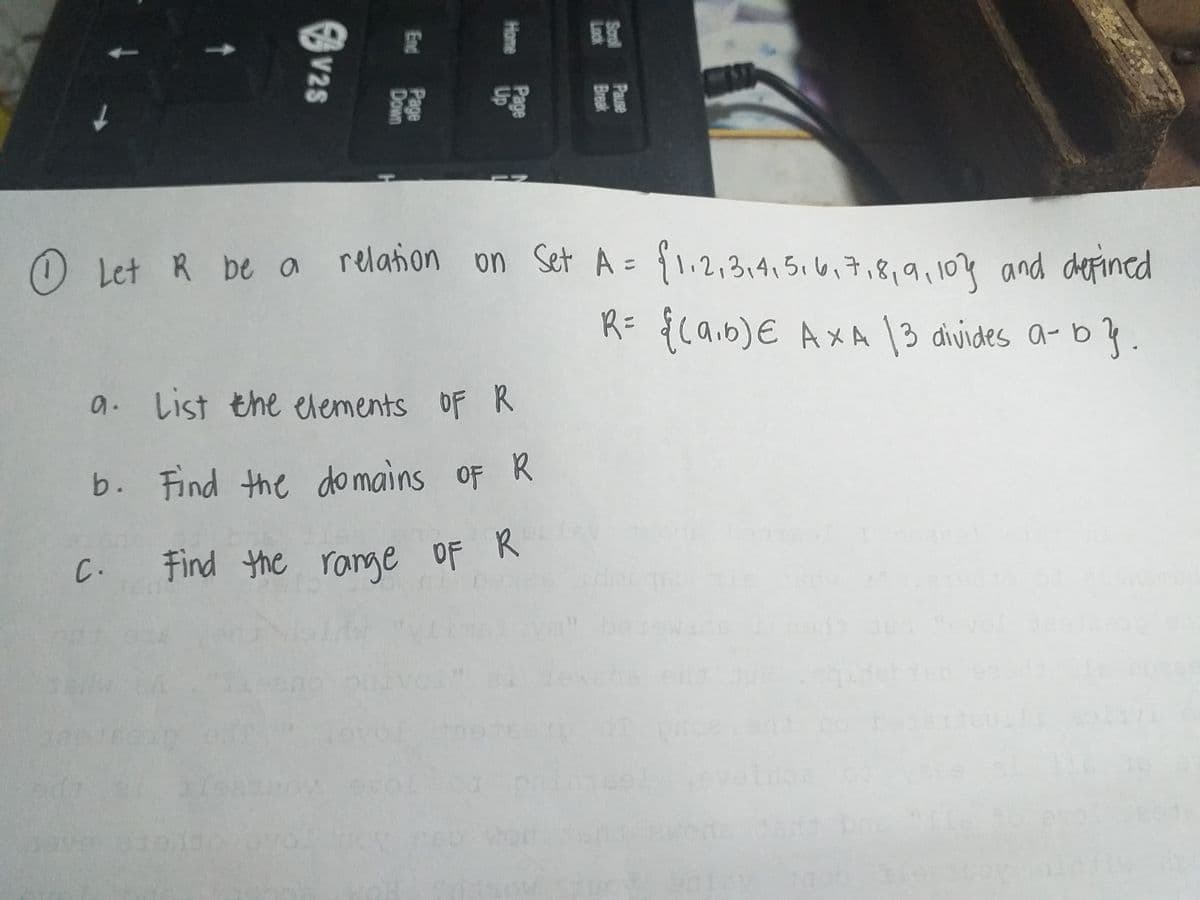 Scroll Lock
Pause Break
Home
Page Up
End
Page Down
V2S
① Let R be a relation on Set A = {1,2,3,4,5,6,7,8,9,10} and defined
R= {(a,b)∈ A×A \3 divides a-b}.
a. List the elements OF R
b. Find the domains OF R
c. Find the range OF R